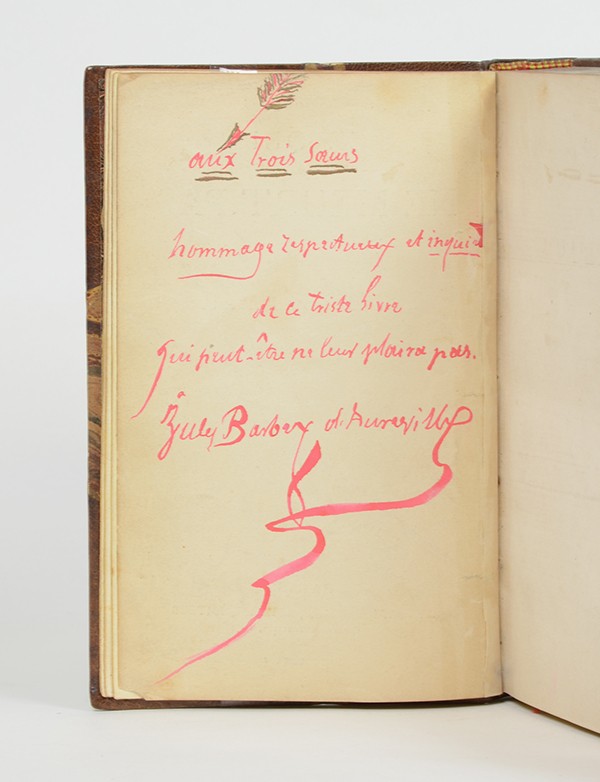 aux Trois Sœurs
hommage respectueux et inquiet
de ce triste livre
qui peut-être ne leur plaira pas.
Jules Barbey d'Aurevilly